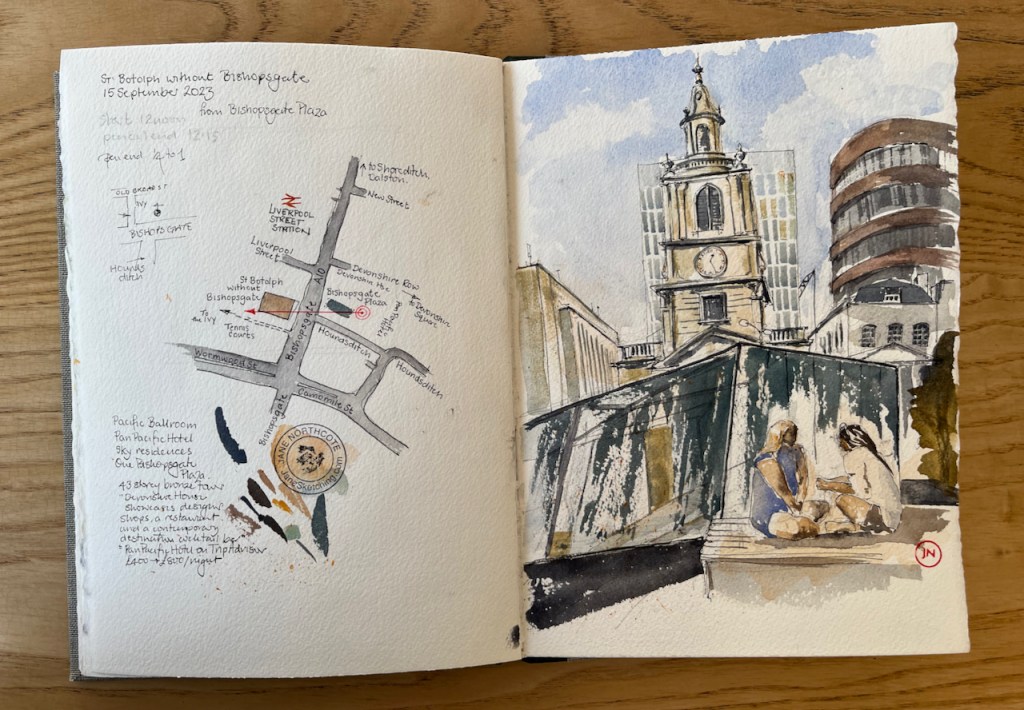 St. Botolph without Bishopsgate
15 September 2023
from Bishopsgate Plaza
Start 12 noon
pencil end 12:15
pen end 1/4 to 1
OLD BREAD ST
IVY
BISHOPSGATE
Hounds
ditch
to Shoreditch
Dalston.
New Street
LIVERPOOL
STREET
STATION
Liverpool
Street
A10
Devonshire Row
Devonshire Hse
to Devonshire
Square
St Botolph
without
Bishopsgate
Bishopsgate
Plaza
To
the IVY
Tennis
Courts
Bishopsgate
Houndsditch
Houndsditch
Wormwood St
Camomile St
Bishopsgate
JANE NORTHCOTE
Pacific Ballroom
Pan Pacific Hotel
Sky residences
'One Bishopsgate
Plaza.
43 storey bronze tower
"Devonshire House
showcases designer
shops, a restaurant
and a contemporary
destination cocktail bar"
"Pan Pacific Hotel on TripAdvisor
£400 → £800/night
JN